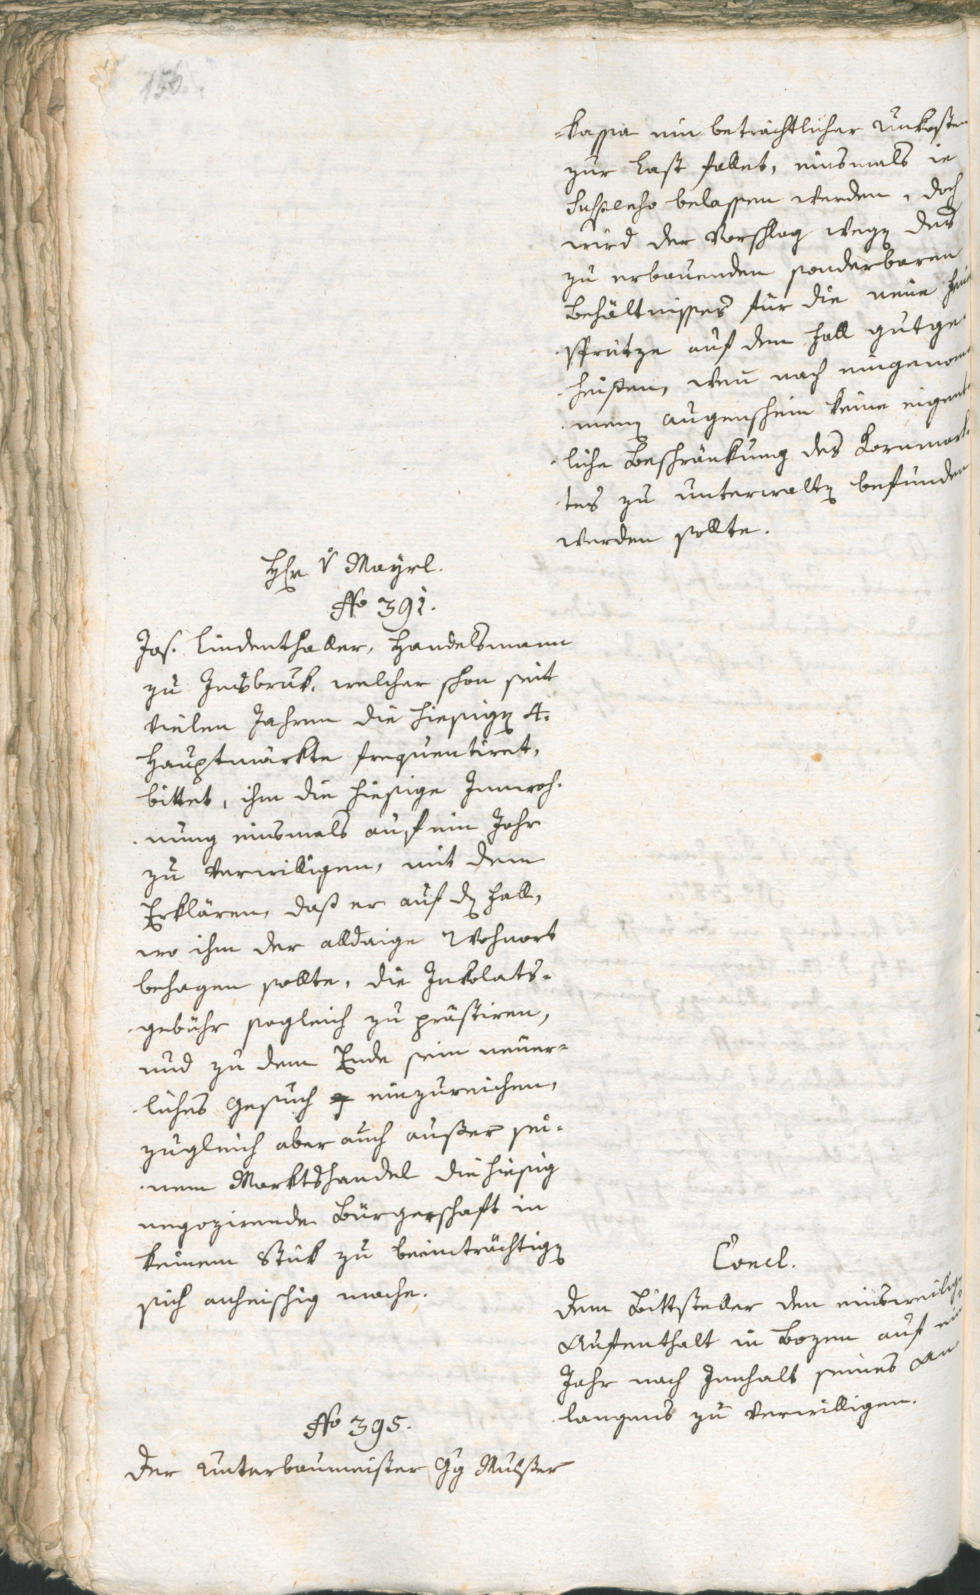 156.
-kassa ein beträchtlicher Unkosten
zur Last fallet, einsmals in
Suspenso belassen werden, doch
wird der Vorschlag wegen des
zu erbauenden sonderbaren
Behältnisses für die neue Feuer
spritze auf dem Fall gutge-
heissen, wenn nach eingenom
menen Augenschein keine eigent-
liche Beschränkung des Kornmark
tes zu unterwalten befunden
werden sollte.
Hr v Mayrl.
No 391.
Jos. Lindenthaller, Handelsmann
zu Insbruk, welcher schon seit
vielen Jahren die hiesigen 4.
Hauptmärkte frequentiret,
bittet, ihm die hiesige Innwoh-
nung einsmals auf ein Jahr
zu verwilligen, mit dem
Erklären, daß er auf den Fall,
wo ihm der alldaige Wohnort
behagen sollte, die Inkolats-
gebühr sogleich zu prästiren,
und zu dem Ende sein neuer-
liches Gesuch einzureichen,
zugleich aber auch ausser sei-
nem Marktshandel die hiesig
negozirende Bürgerschaft in
keinem Stük zu beeinträchtigen
sich anheischig mache.
Concl.
Dem Bittsteller den einsweiligen
Aufenthalt in Bozen auf ein
Jahr nach Innhalt seines An
langens zu verwilligen.
No 395.
Der Unterbaumeister Gg Mulser